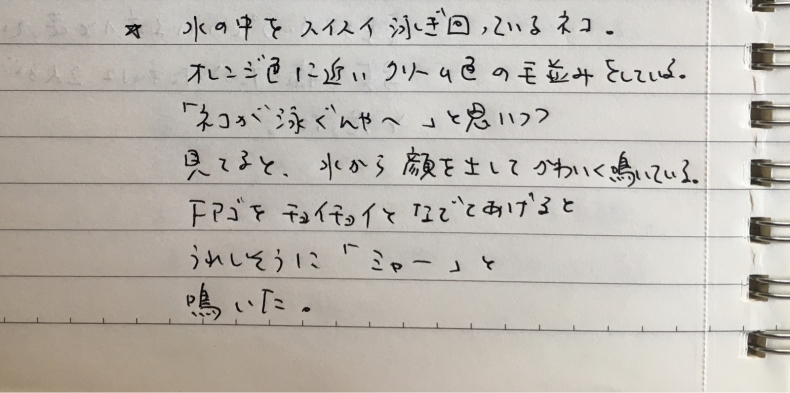 ☆ 水の中をスイスイ泳ぎ回っているネコ。
オレンジ色に近いクリーム色の毛並みをしている。
「ネコが泳ぐんやへ」と思いつつ
見てると、水から顔を出してかわいく鳴いている。
下アゴをチョイチョイとなでてあげると
うれしそうに「ミャー」と
鳴いた。